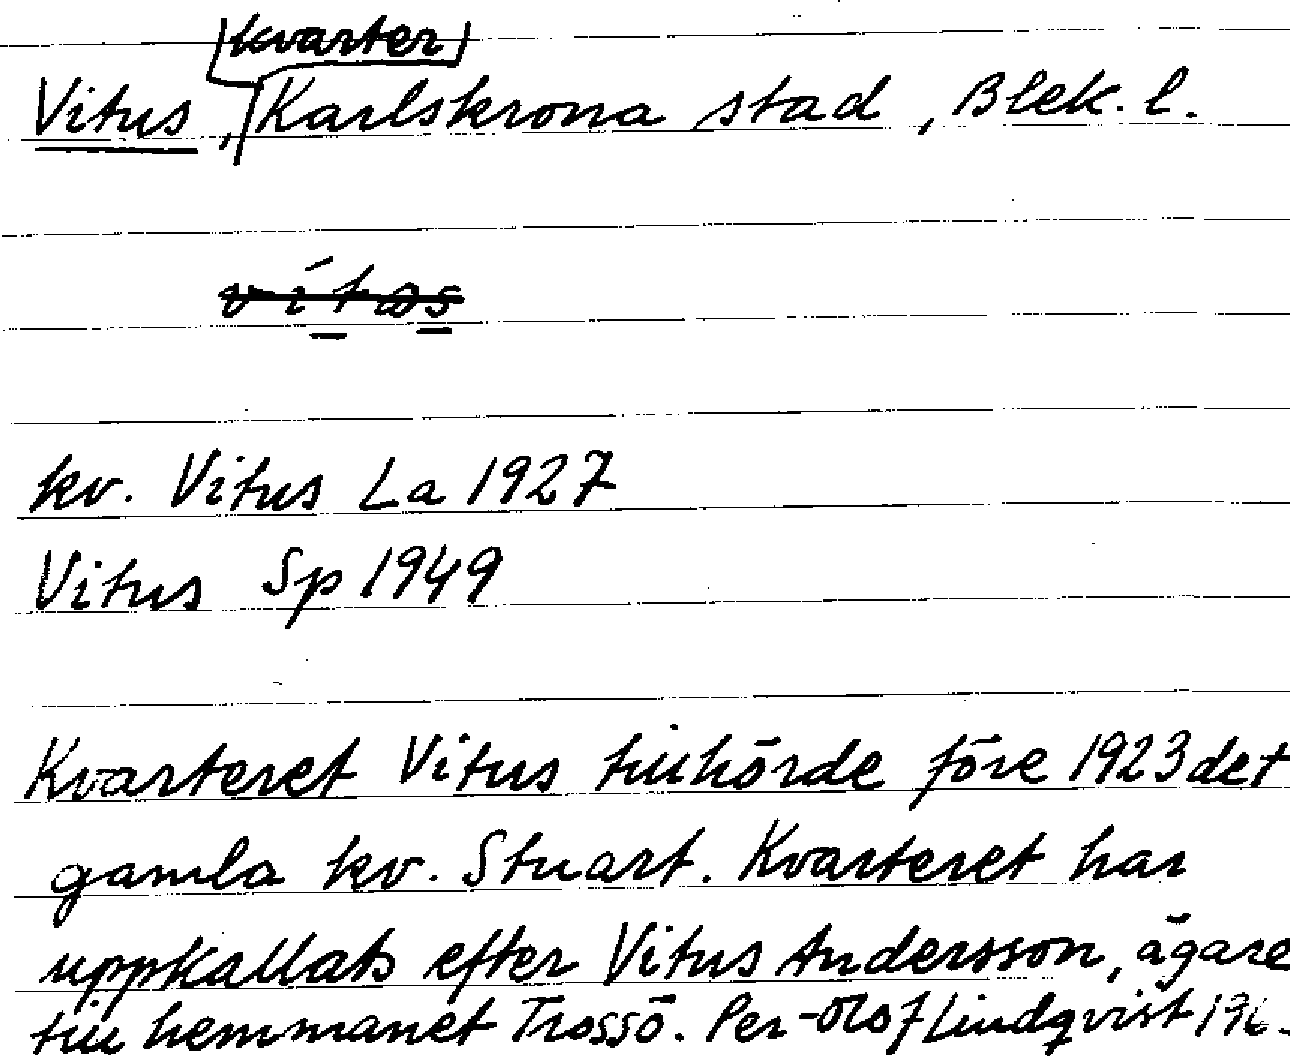 kvarter
Vitus, Karlskrona stad, Blek. l.
kv. Vitus La 1927
Vitus Sp 1949
Kvarteret Vitus tillhörde före 1923 det
gamla kv. Stuart. Kvarteret har
uppkallats efter Vitus Andersson, ägare
till hemmanet Trossö. Per-Olof Lindqvist